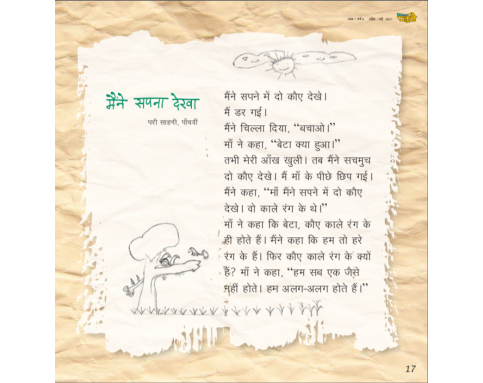 मैंने सपना देखा
परी साहनी, पाँचवीं
मैंने सपने में दो कौए देखे।
मैं डर गई।
मैंने चिल्ला दिया, “बचाओ।”
माँ ने कहा, “बेटा क्या हुआ।”
तभी मेरी आँख खुली। तब मैंने सचमुच
दो कौए देखे। मैं माँ के पीछे छिप गई।
मैंने कहा, “माँ मैंने सपने में दो कौए
देखे। वो काले रंग के थे।”
माँ ने कहा कि बेटा, कौए काले रंग के
ही होते हैं। मैंने कहा कि हम तो हरे
रंग के हैं। फिर कौए काले रंग के क्यों
हैं? माँ ने कहा, “हम सब एक जैसे
नहीं होते। हम अलग-अलग होते हैं।”
17